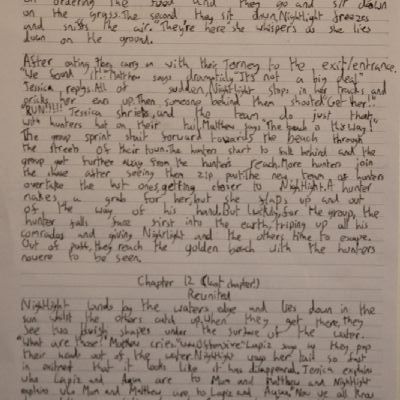 on ordering the food and they go and sit down
on the grass. The second they sit down, Nightlight freezes
and sniffs the air. "They're here" she whispers as she lies
down on the ground.
After eating they carry on with their jorney to the exit/entrance.
"We found it!" Matthew says dramaticly. "It's not a big deal"
Jessica replys. All of sudden, Nightlight stops in her tracks and
pricks her ears up. Then someone behind them shouted "Get her!"
"RUN!!!!" Jessica shrieks and the team do just that,
with hunters hot on their tail. Matthew says "The beach is this way!"
The group sprint start forward towards the beach through
the streets of their town. The hunters start to fall behind and the
group get further away from the hunters reach. More hunters join
the chase after seeing them zip past. The new team of hunters
overtake the last ones, getting closer to Nightlight. A hunter
makes a grab for her, but she flaps up and out
of the way of his hand. But luckily for the group, the
hunter falls face first into the earth, triping up all his
comrades and giving Nightlight and the others time to escape.
Out of puff, they reach the golden beach with the hunters
nowere to be seen.
Chapter 12 (last chapter!)
Reunited
Nightlight lands by the waters edge and lies down in the
sun whilst the others catch up. When they get there, they
see two blueish shapes under the surface of the water.
"What are those!" Matthew cries. Lapiz says as they pop
their heads out of the water. Nightlight wags her tail so fast
in exitment that it looks like it has disappered. Jessica explains
who Lapiz and Aqua are to Mum and Matthew and Nightlight
explains who Mum and Matthew are to Lapiz and Aqua. "Now we all know